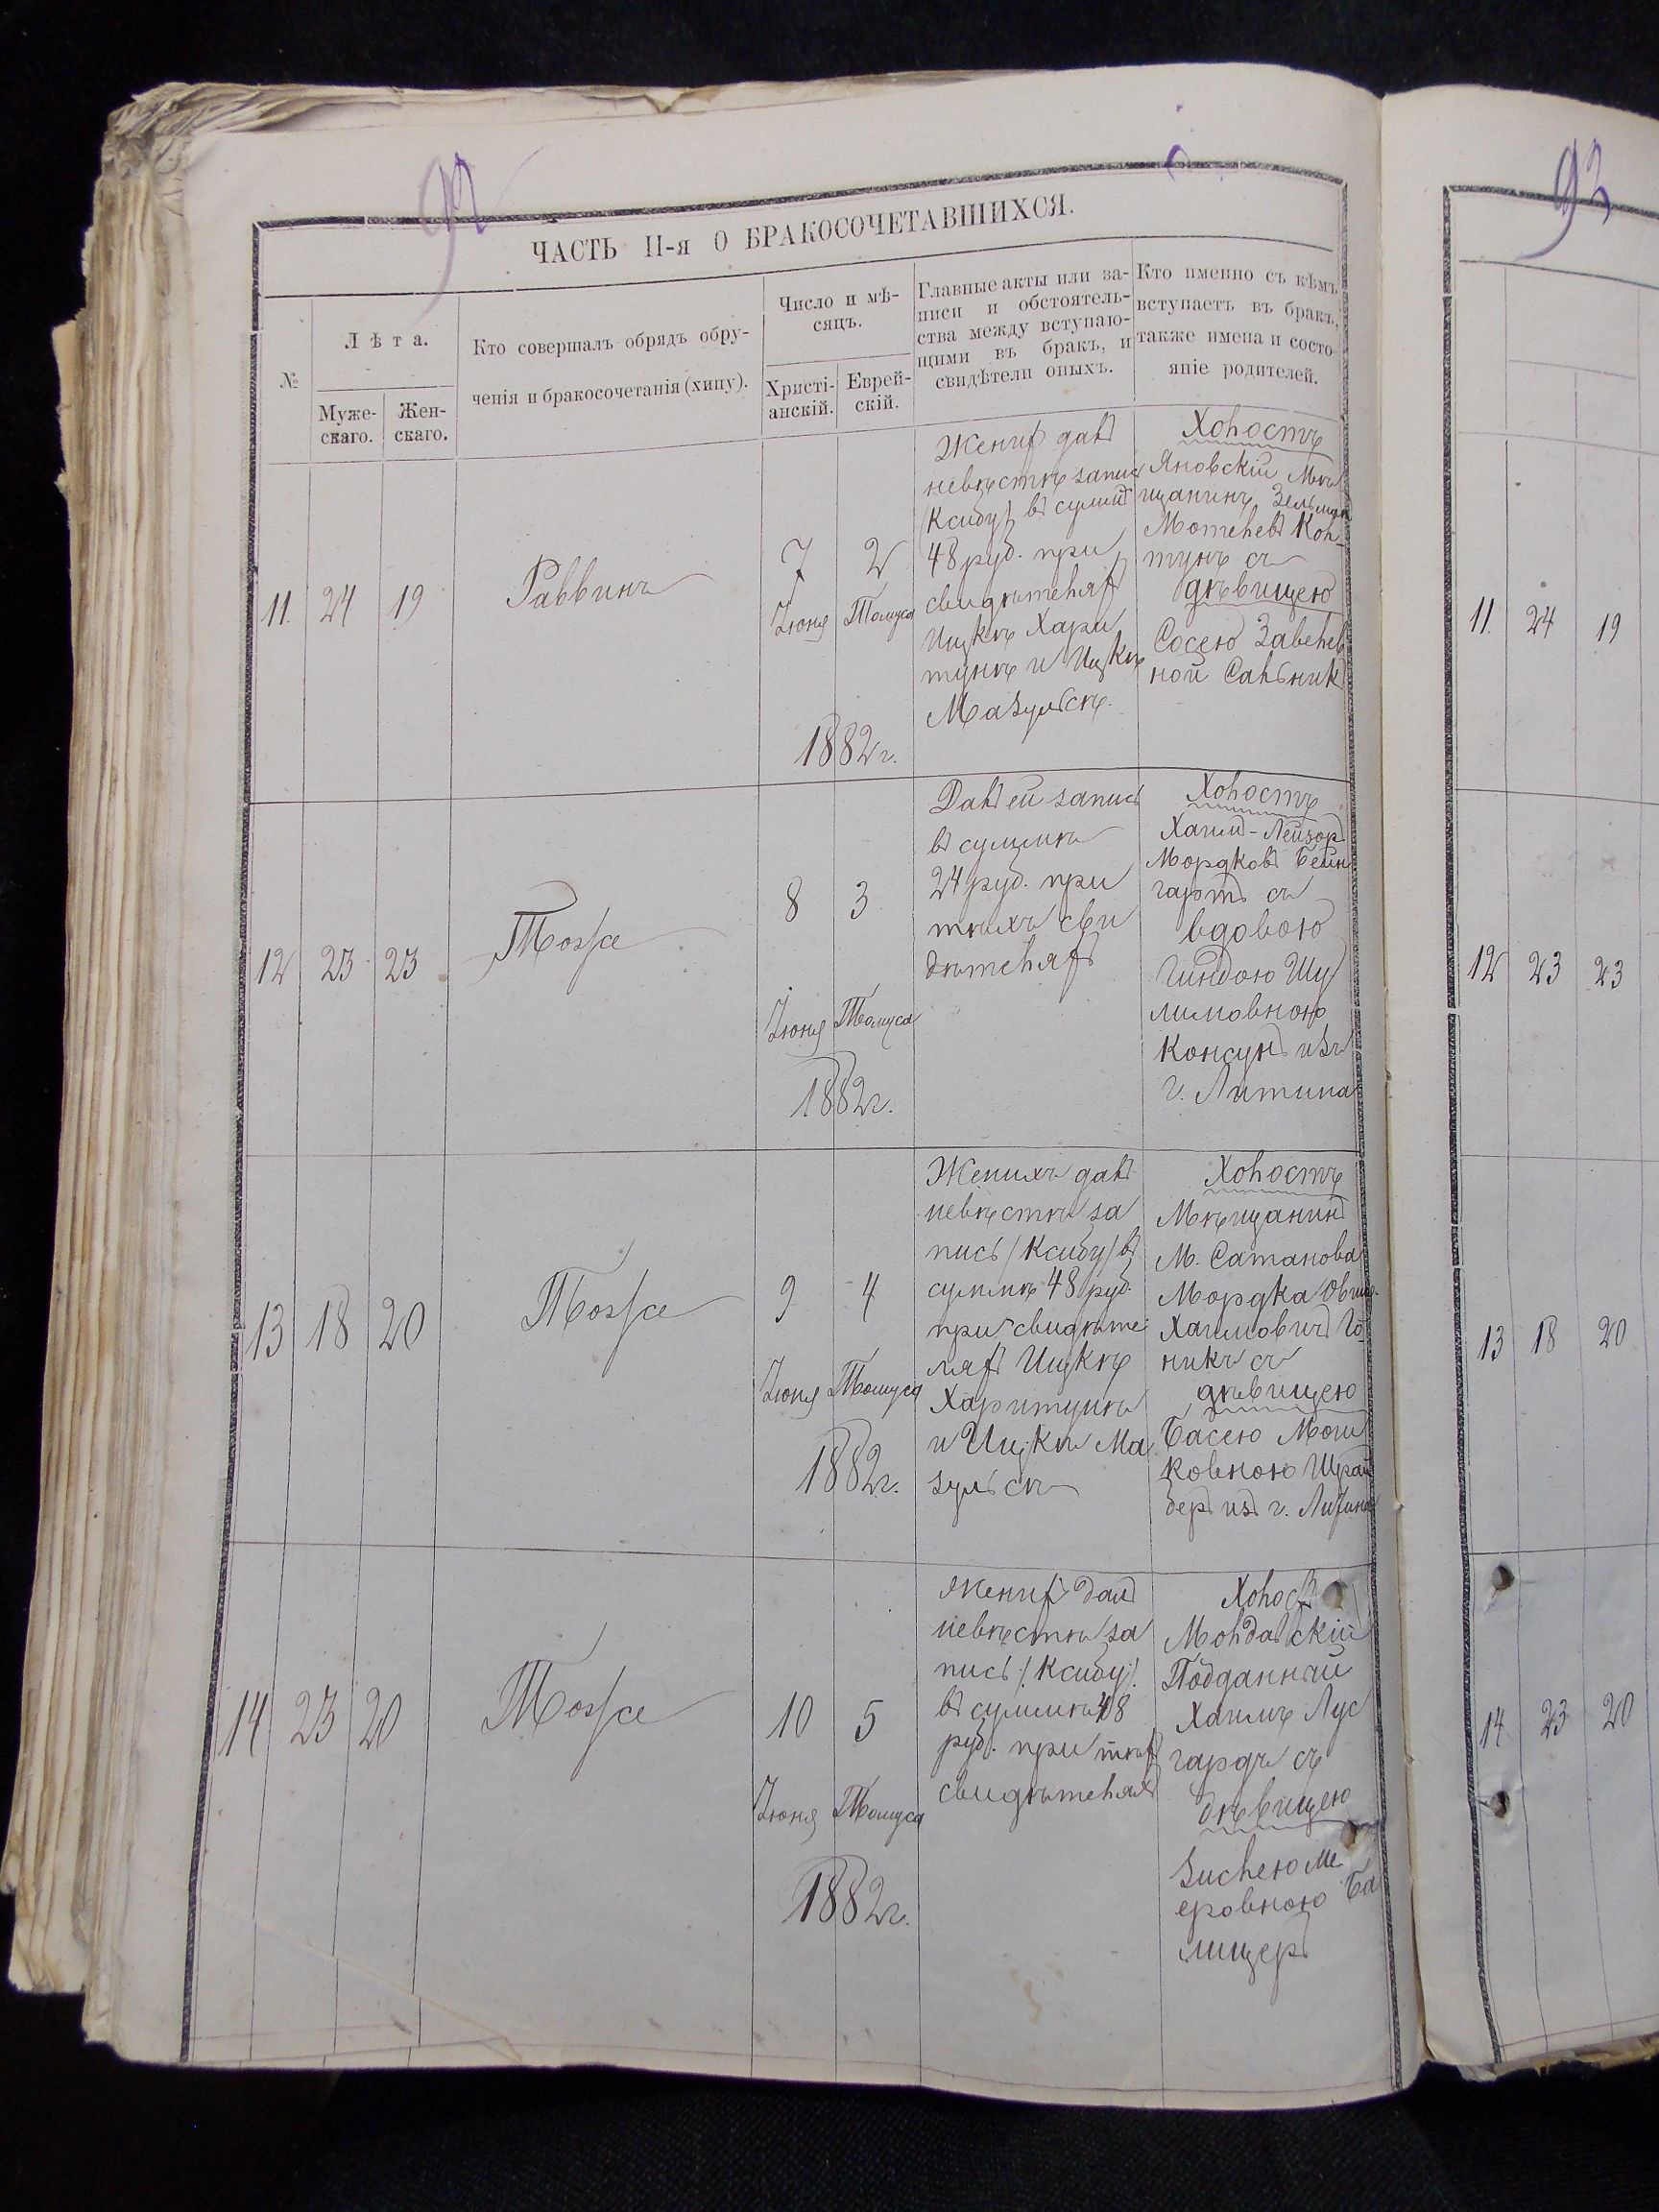 92
93
ЧАСТЬ II-я О БРАКОСОЧЕТАВШИХСЯ.
№
Лѣта.
Муже-
скаго.
Жен-
скаго.
Кто совершалъ обрядъ обру-
ченія и бракосочетанія (хипу).
Число и мѣ-
сяцъ.
Христі-
анскій.
Еврей-
скій.
Главные акты или за-
писи и обстоятель-
ства между вступаю-
щими въ бракъ, и
свидѣтели оныхъ.
Кто именно съ кѣмъ
вступаетъ въ бракъ,
также имена и состо-
яніе родителей.
11.
24
19
Раввинъ
7
Іюня
2
Тамуса
1882 г.
Женихъ далъ
невѣстѣ запись
(Ксибу) въ суммѣ
48 руб. при
свидѣтеляхъ
Ицкѣ Хари
тунѣ и Ицкѣ
Мазульскѣ.
Холостъ
Яновскій Мѣ
щанинъ Зельман
Мотелевъ Кол-
тунъ съ
дѣвицею
Сосею Завелев
ной Сальник
12
23
23
Тоже
8
Іюня
3
Тамуса
1882 г.
Далъ ей запись
въ суммѣ
24 руб. при
тѣхъ сви
дѣтеляхъ
Холостъ
Хаимъ-Лейзоръ
Мордковъ Бейн
гартъ съ
вдовою
Гиндою Шу
лимовною
изъ
г. Литина
13
18
20
Тоже
9
Іюня
4
Тамуса
1882 г.
Женихъ далъ
невѣстѣ за
пись (Ксибу) въ
суммѣ 48 руб.
при свидѣте
ляхъ Ицкѣ
Харитунѣ
и Ицкѣ Ма
зульскѣ
Холостъ
Мѣщанинъ
М. Сатанова
Мордка
Хаимовичъ Го-
никъ съ
дѣвицею
Басею Мош
ковною Шрай
беръ изъ г. Литина
14
23
20
Тоже
10
Іюня
5
Тамуса
1882 г.
Женихъ далъ
невѣстѣ за
пись (Ксибу)
въ суммѣ 48
руб. при тѣхъ
свидѣтеляхъ
Холостъ
Молдавскій
Подданный
Хаимъ Лус
гардъ съ
дѣвицею
Зислею Ме
еровною Ба
лицеръ
11.
24
19
12
23
23
13
18
20
14.
23
20